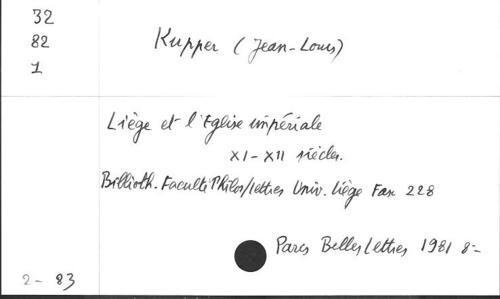 32
82
1
Kupper (Jean-Louis)
Liège et l'Eglise impériale
XI-XII siècles.
Biblioth. Faculté Philos/lettres Univ. Liège Fasc 228
Paris Belles Lettres 1981 8=
2- 83